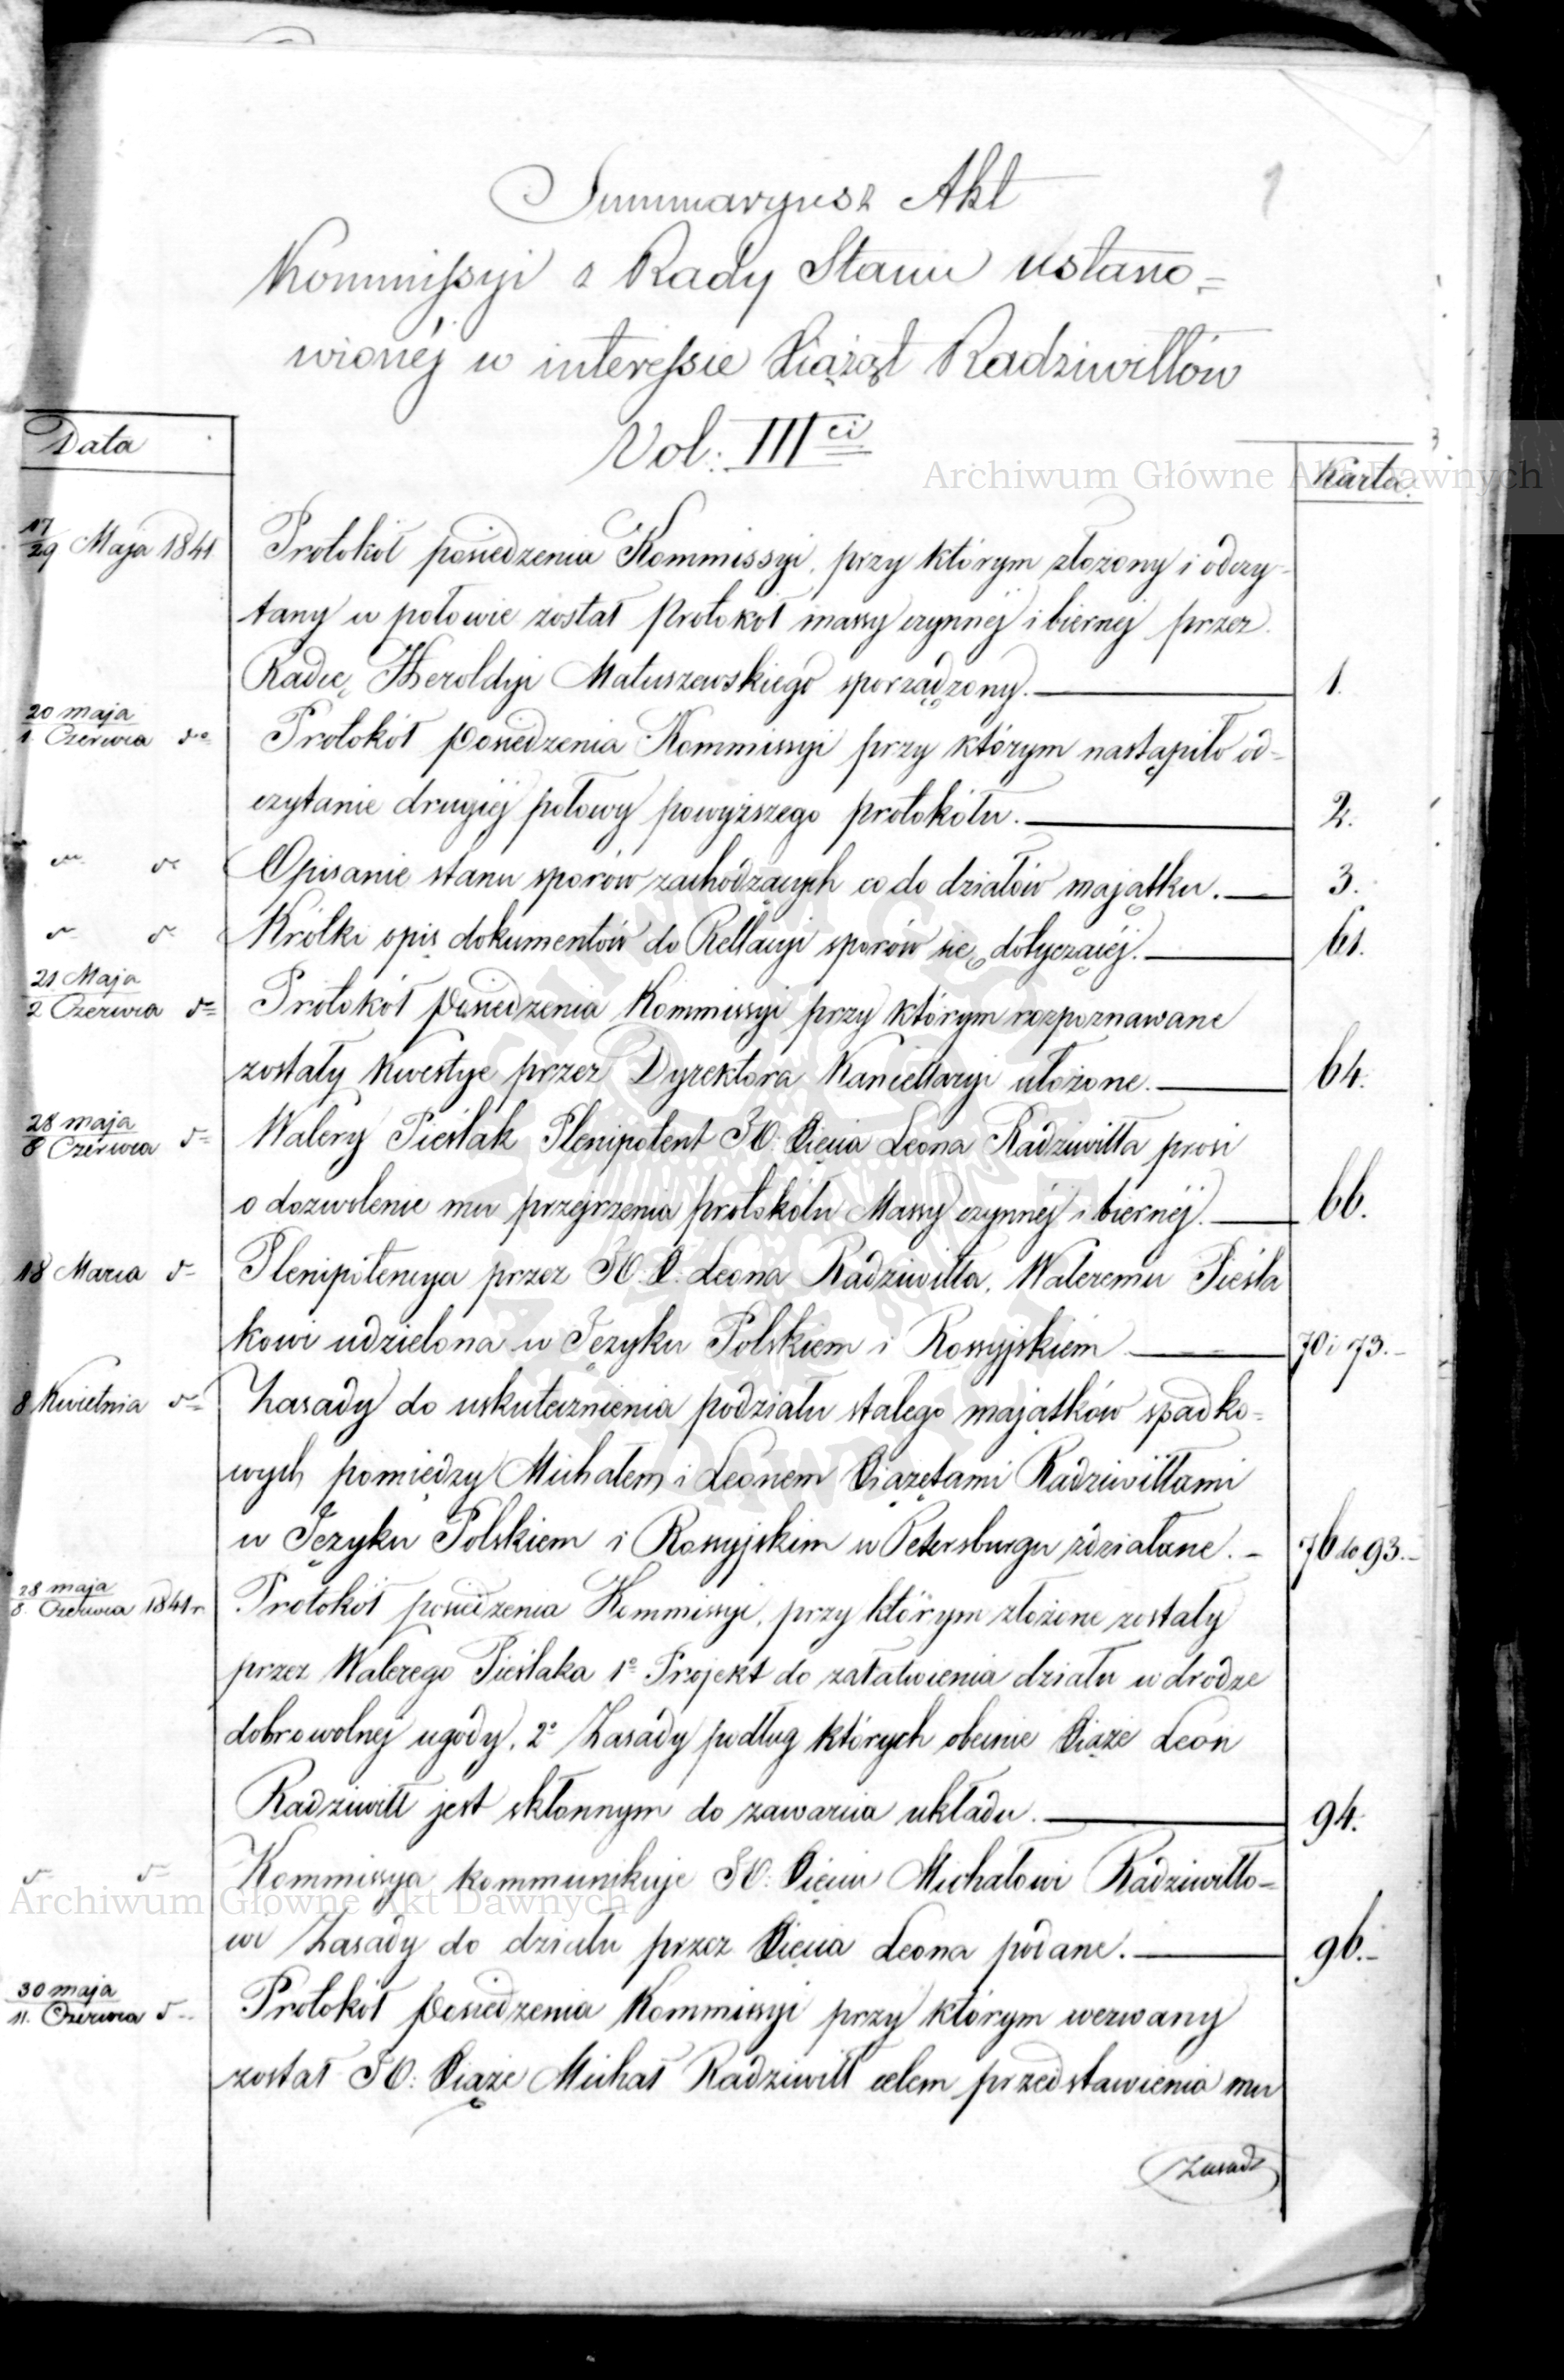 1
Summaryusz Akt
Kommissyi z Rady Stanu ustano=
wionéj w interessie Xiążąt Radziwiłłów
Vol: III ci
Data
Karta.
17/29 Maja 1841. Protokół posiedzenia Kommissyi, przy którym złożony i odczy-
tany w połowie został protokół massy czynnéj i biernéj przez
Radcę Heroldyi Matuszewskiego sporządzony. 1.
20 maja
1. Czerwca do Protokół posiedzenia Kommissyi przy którym nastąpiło od=
czytanie drugiéj połowy powyższego protokółu. 2.
do do Opisanie stanu sporów zachodzących co do działów majątku. 3.
do do Krótki opis dokumentów do Rellacyi sporów się dotyczącéj. 61.
21 Maja
2 Czerwca do Protokół posiedzenia Kommissyi przy którym rozpoznawane
zostały kwestye przez Dyrektora Kancellaryi ułożone. 64.
28 maja
8 Czerwca do Walery Pieślak Plenipotent JO: Xięcia Leona Radziwiłła prosi
o dozwolenie mu przejrzenia protokółu Massy czynnéj i biernéj. 66.
18 Marca do Plenipotencya przez JO. X. Leona Radziwiłła, Waleremu Pieśla
kowi udzielona w Języku Polskiem i Rossyjskiém 70 i 73.
8 Kwietnia do Zasady do uskutecznienia podziału stałego majątków spadko=
wych pomiędzy Michałem i Leonem Xiążętami Radziwiłłami
w Języku Polskiem i Rossyjskim w Petersburgu zdziałane. 76 do 93.
28 maja
8. Czerwca 1841 r. Protokół posiedzenia Kommissyi, przy którym złożone zostały
przez Walerego Pieślaka 1o Projekt do załatwienia działu w drodze
dobrowolnej ugody, 2o Zasady podług których obecnie Xiąże Leon
Radziwiłł jest skłonnym do zawarcia układu. 94.
do do Kommissya kommunikuje JO: Xięciu Michałowi Radziwiłło=
wi Zasady do działu przez Xięcia Leona podane. 96.
30 maja
11. Czerwca do Protokół posiedzenia Kommissyi przy którym wezwany
został JO: Xiąże Michał Radziwiłł celem przedstawienia mu
Zasad
Archiwum Główne Akt Dawnych
Archiwum Główne Akt Dawnych